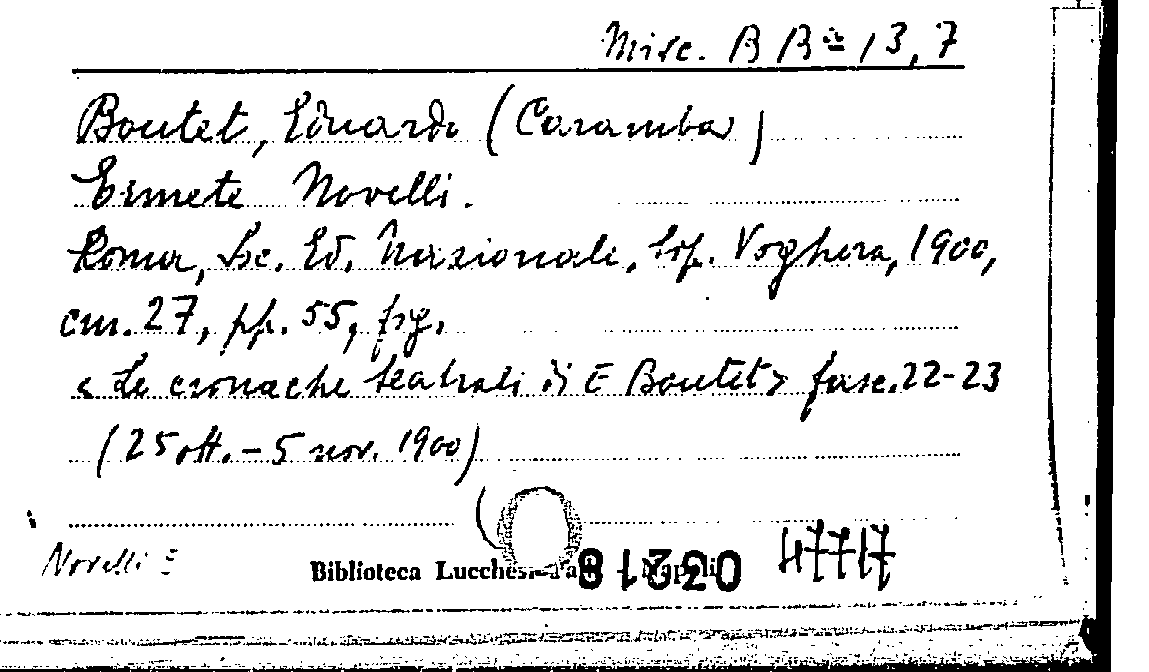 Misc. B B 13,7
Boutet, Eduardo (Caramba)
Ermete Novelli.
Roma, Soc. Ed. Nazionale, tip. Voghera, 1900,
cm. 27, pp. 55, fig.
< Le cronache teatrali di E Boutet > fasc. 22-23
(25 ott. - 5 nov. 1900)
Novelli E
Biblioteca Lucchesi Napoli
03218
47717